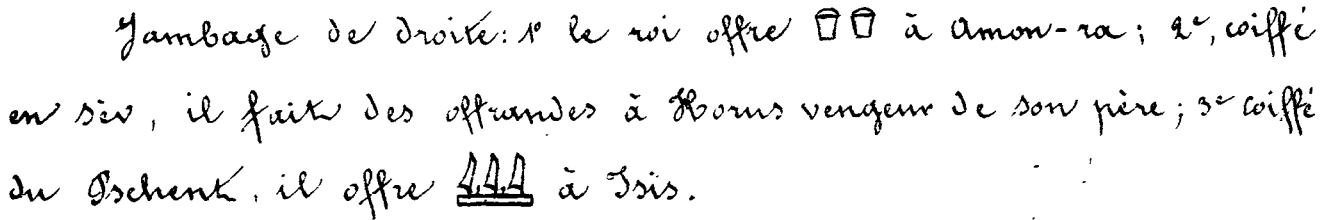 Jambage de droite: 1° le roi offre à Amon-ra; 2°, coiffé
en sèv, il fait des offrandes à Horus vengeur de son père; 3° coiffé
du Pschent, il offre à Isis.